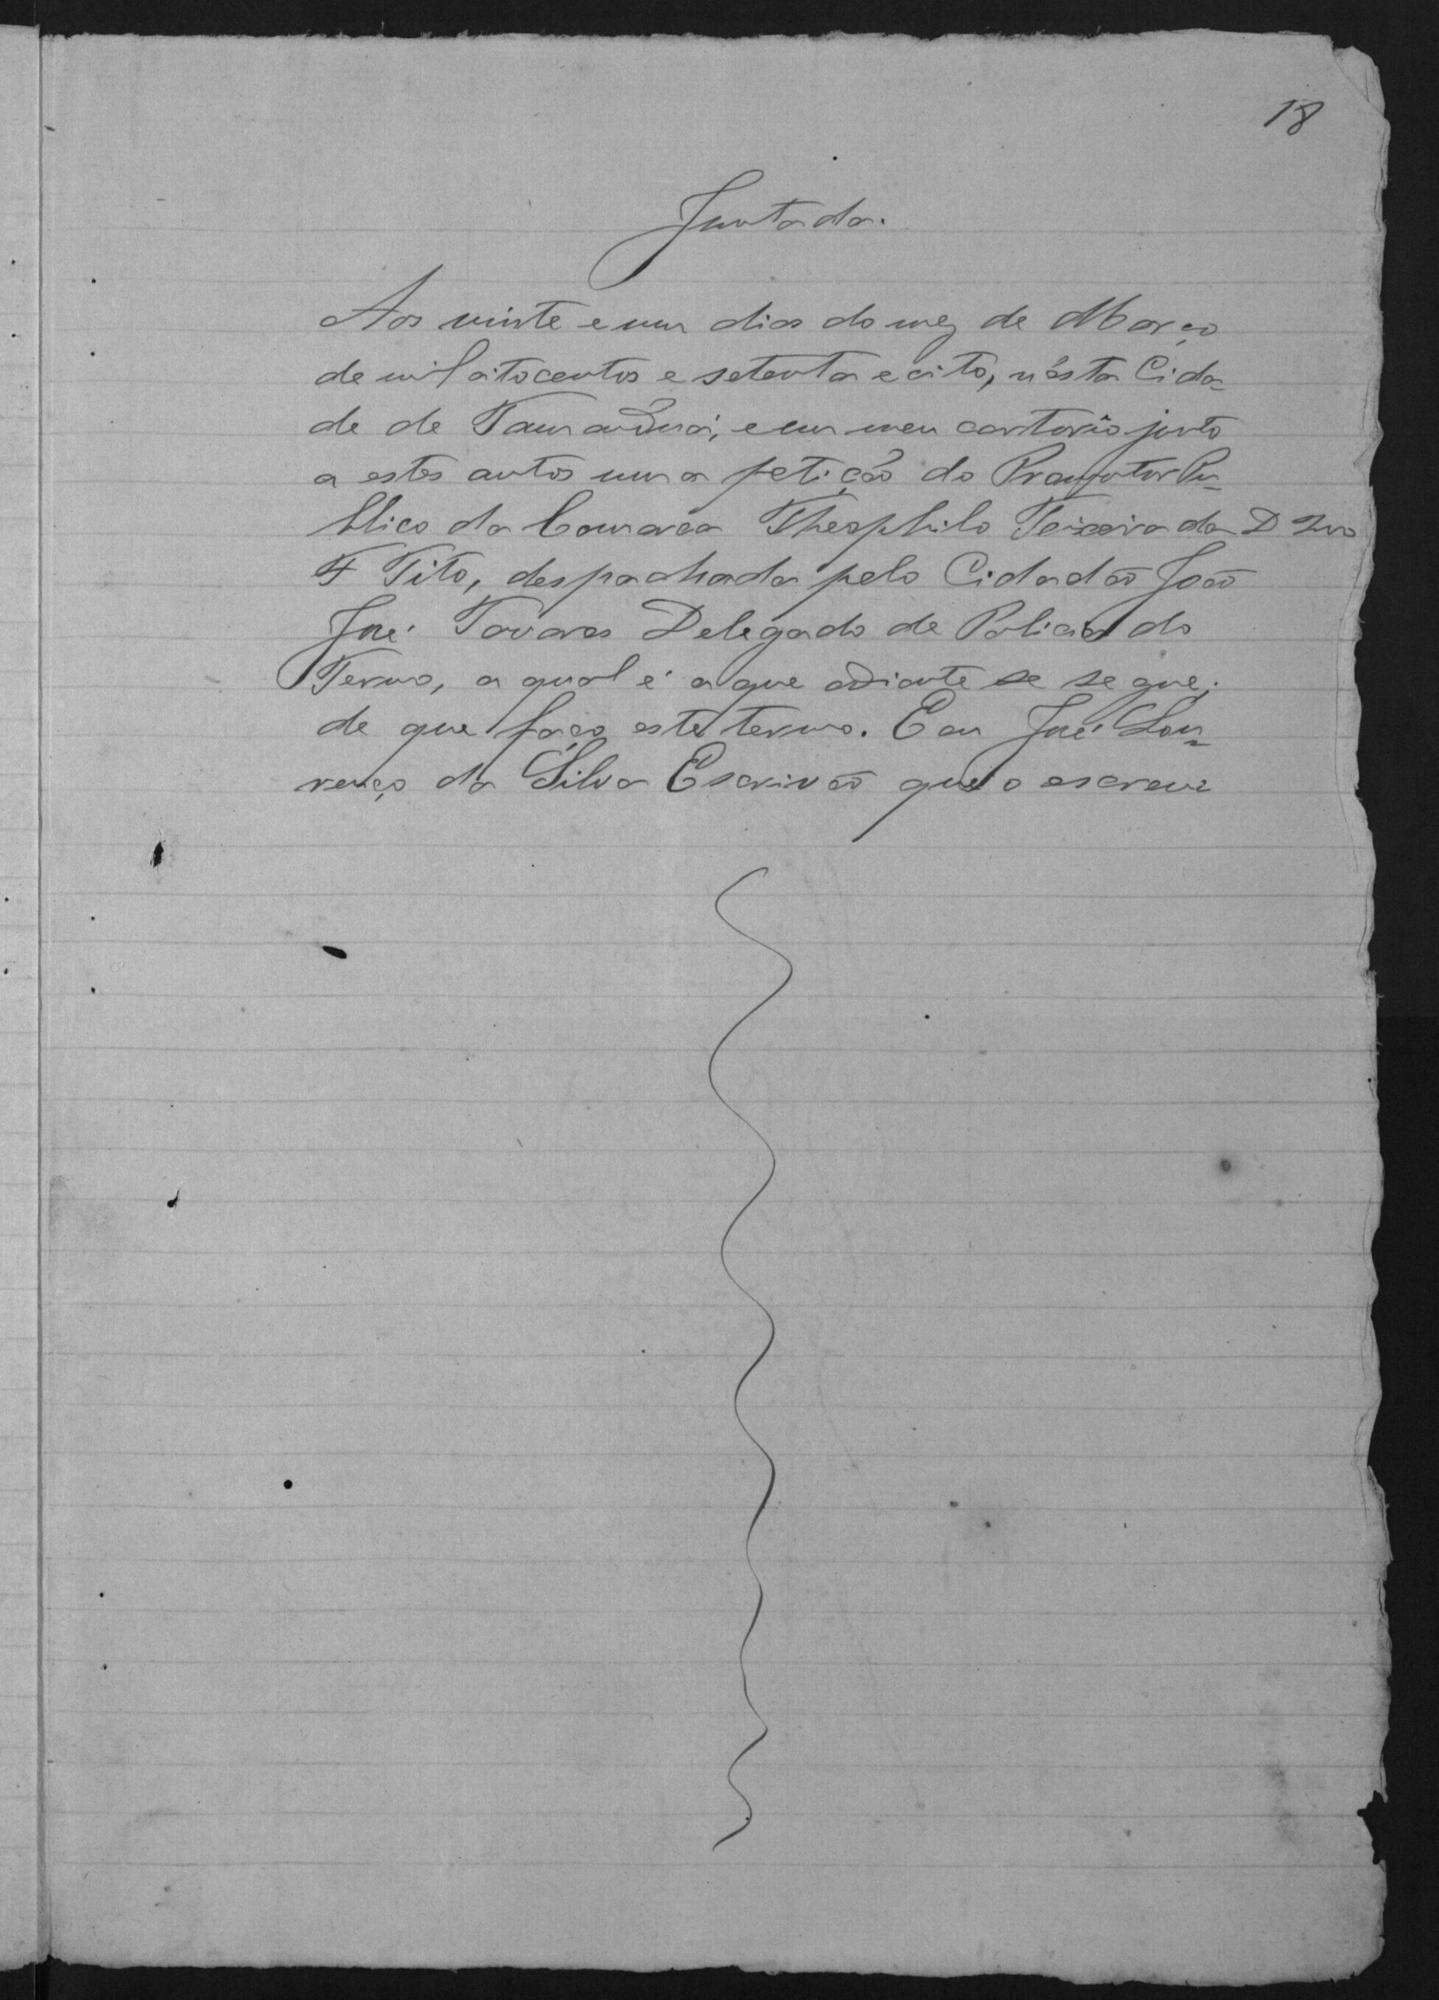 18
Juntada.
Aos vinte e um dias do mez de Março
de mil oitocentos e setenta e oito, n'esta Cida-
de de Tamanduá, e em meu cartorio junto
a estes autos uma petição do Promotor Pu-
blico da Comarca Theophilo Teixeira da
Tito, despachada pelo Cidadão João
José Tavares Delegado de Policia do
Termo, a qual é a que adiante se segue;
de que faço este termo. Eu José Lou-
renço da Silva Escrivão que o escrevi